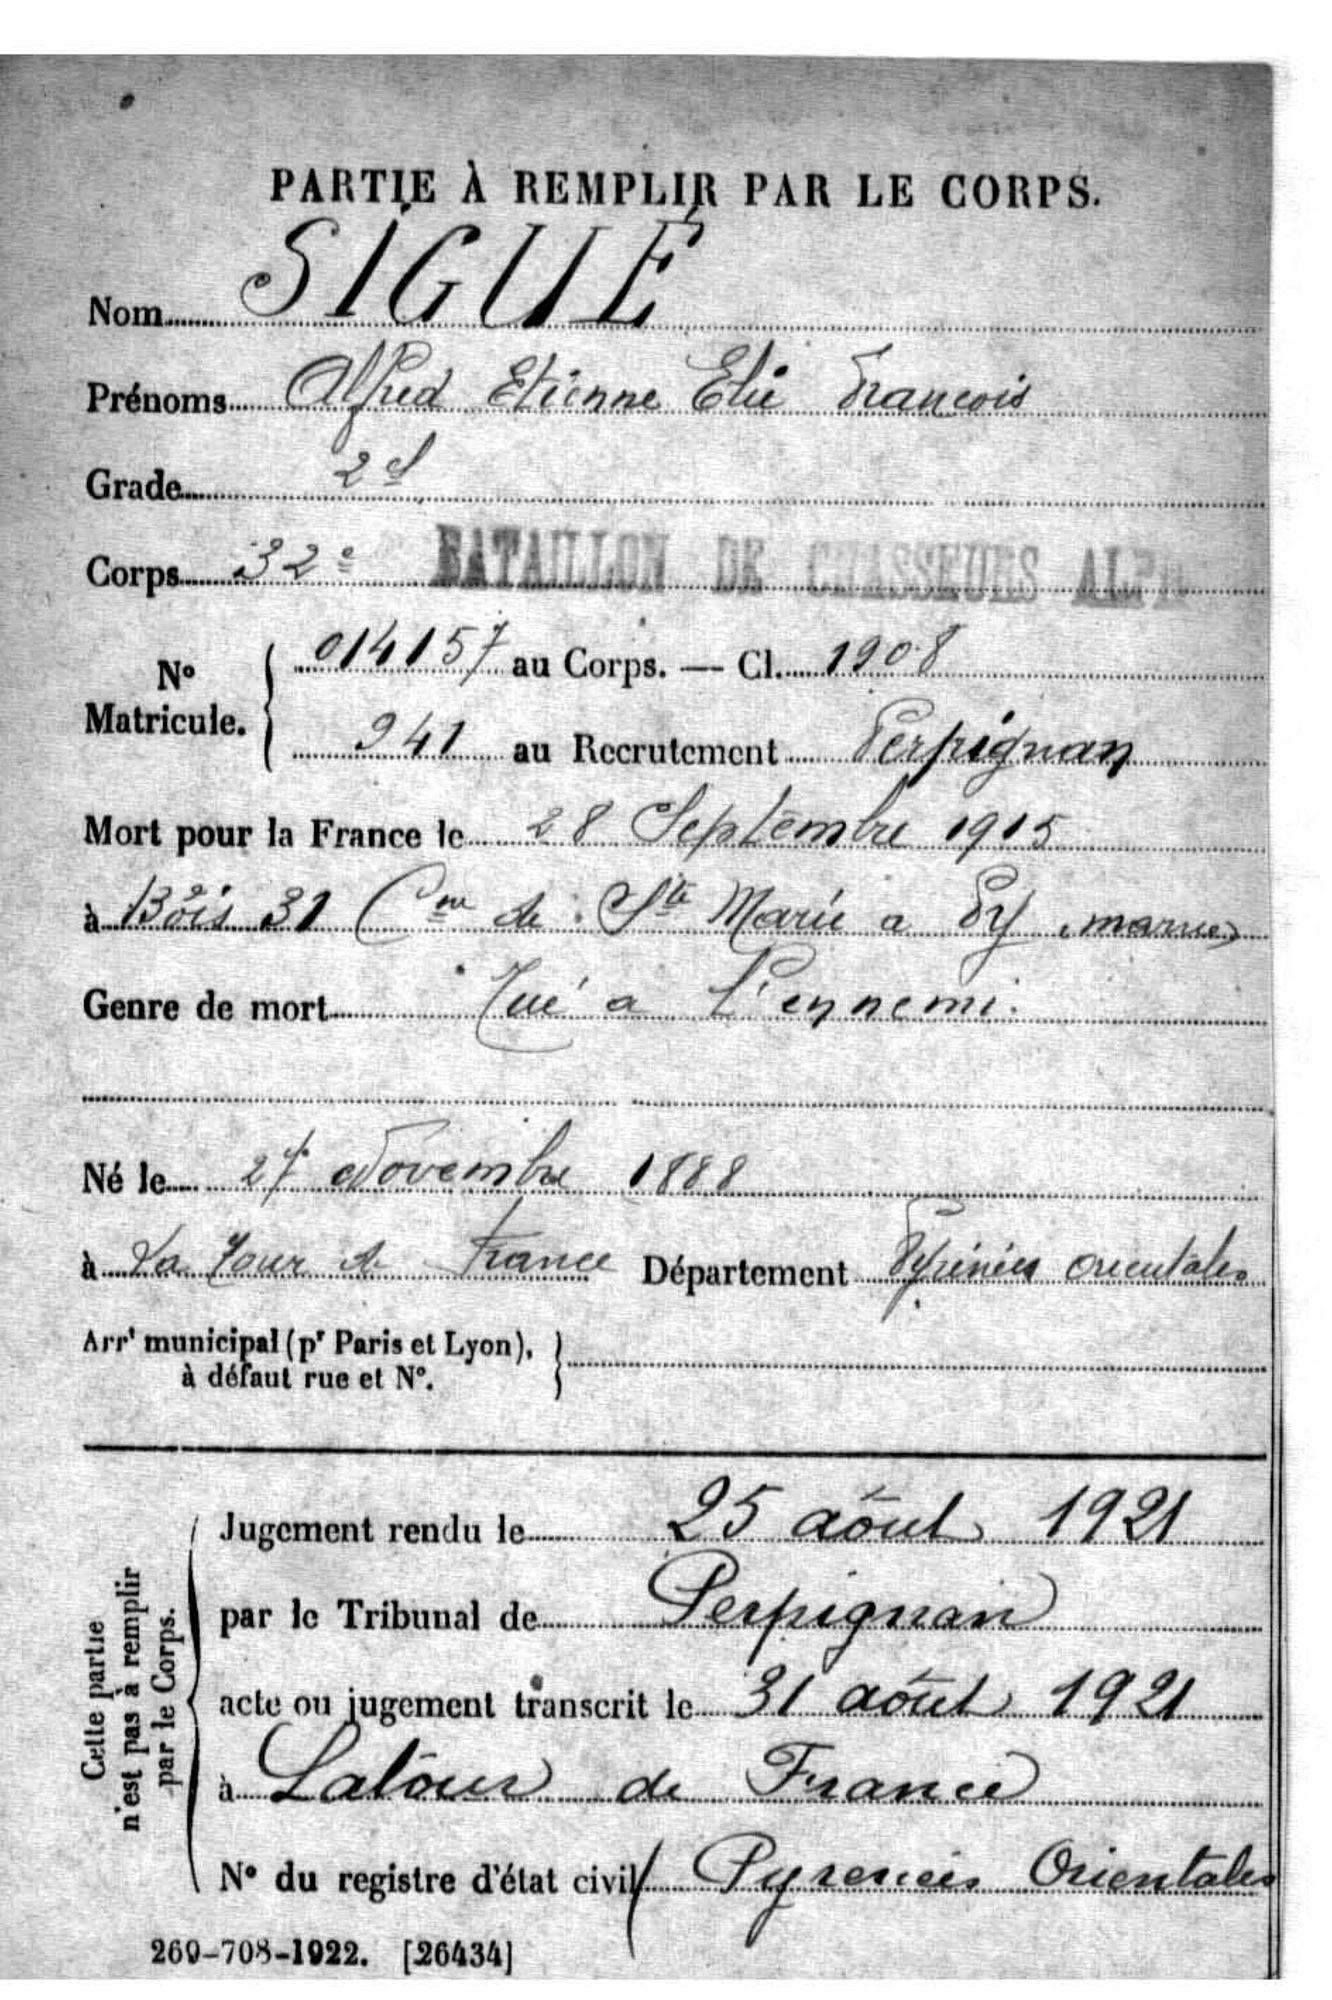 PARTIE À REMPLIR PAR LE CORPS.
Nom SIGUÉ
Prénoms Alfred Etienne Elie Francois
Grade 2e
Corps 32e BATAILLON DE CHASSEURS ALPIN
No Matricule. 014157 au Corps. — Cl. 1908
941 au Recrutement Perpignan
Mort pour la France le 28 Septembre 1915
à Bois 31 Cne de Ste Marie a Py (marne)
Genre de mort Tué a l'ennemi.
Né le 27 Novembre 1888
à La Tour de France Département Pyrénées Orientales
Arrt municipal (pr Paris et Lyon),
à défaut rue et No.
Cette partie
n'est pas à remplir
par le Corps.
Jugement rendu le 25 août 1921
par le Tribunal de Perpignan
acte ou jugement transcrit le 31 août 1921
à Latour de France
No du registre d'état civil Pyrenées Orientales
269-708-1922. [26434]